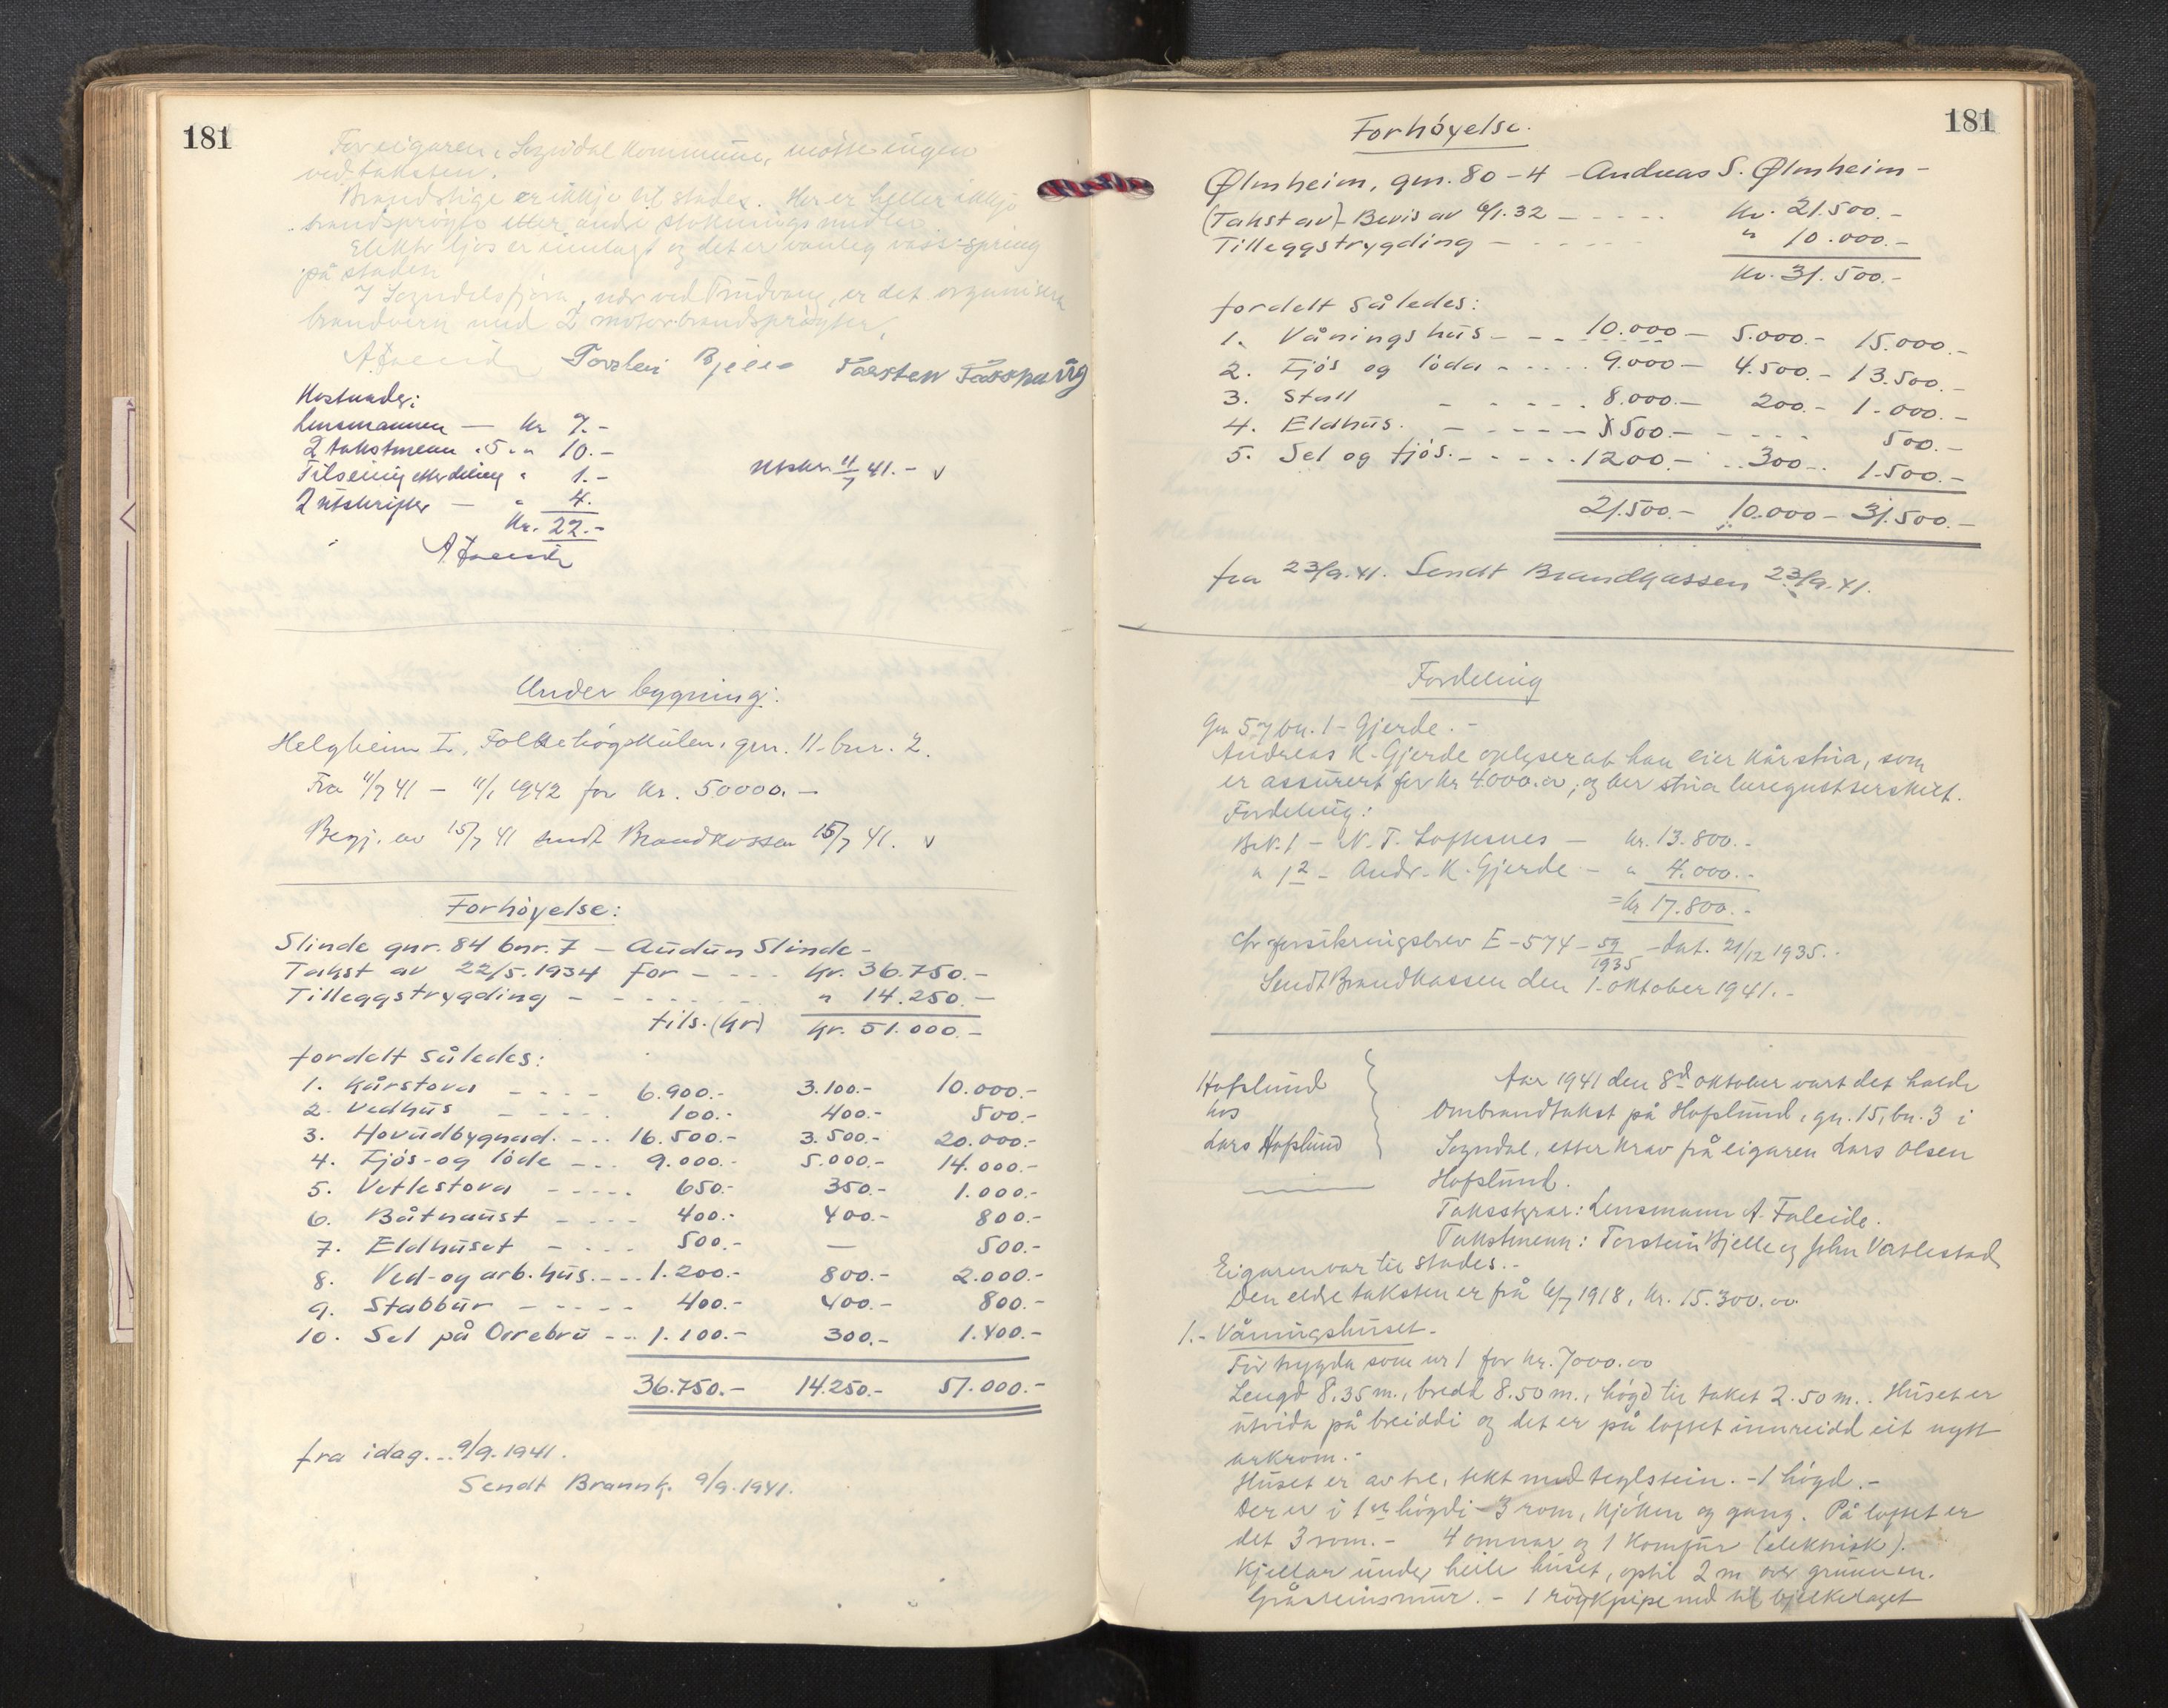 181
For eigaren, Sogndal kommune, møtte ingen
ved taksten.
Brandstige er ikkje til stades. Her er heller ikkje
brandsprøyte etter andre slokningsmidler.
Elektr. ljos er innlagt og det er vanleg vassspring
på staden
I Sogndalsfjøra, nær ved Trudvang, er det organisera
brandvern med 2 motorbrandsprøyter.
A Faleide Torstein Bjelle Torsten
Kostnader:
Lensmannen — kr 7.-
2 takstmenn . 5 . " 10.-
Tilseiing etter deling " 1.-
2 utskrifter — " 4.
Kr. 22.-
Utskr. 11/7 41. - v
A Faleide
Under bygning:
Helgheim I, Folkehøgskulen, gnr. 11 - bnr. 2.
Fra 11/7 41 — 11/1 1942 for kr. 50000. —
Begj. av 15/7 41 sendt Brandkassen 15/7 41. v
Forhöyelse:
Slinde gnr. 84 bnr. 7 — Audun Slinde -
Takst av 22/5. 1934 for — - - - kr. 36.750.-
Tilleggstrygding - - - - - - " 14.250.—
tils. (kr) kr. 51.000.-
fordelt således:
1. Kårstova - - - - 6.900.- 3.100.- 10.000.-
2. Vedhus - - - - 100.- 400.- 500.-
3. Hovudbygnad. - - - 16.500.- 3.500.- 20.000.-
4. Fjös- og löde - - - 9.000.- 5.000.- 14.000.-
5. Vetlestova - - - - - 650.- 350.- 1.000.-
6. Båtnaust - - - - 400.- 400.- 800.-
7. Eldhuset - - - - 500.- — 500.-
8. Ved- og arb. hus. - - - 1.200.- 800.- 2.000.-
9. Stabbur - - - - - 400.- 400.- 800.-
10. Sel på Orrebru - - - 1.100.- 300.- 1.400.-
36.750.- 14.250.- 51.000.-
fra idag... 9/9. 1941.
Sendt Brannk. 9/9. 1941.
181
Forhöyelse.
Ølmheim, gnr. 80 - 4 - Andreas S. Ølmheim -
(Takst av) - Bevis av 6/1. 32 - - - - - kr. 21.500.-
Tilleggstrygding - - - - - " 10.000.-
kr. 31.500.-
fordelt således:
1. Våningshus - - - 10.000 - 5.000.- 15.000.-
2. Fjös og löda - - - - - 9.000 — 4.500.- 13.500.-
3. Stall - - - - - 8.000.— 200.- 1.000.-
4. Eldhus. - - - - - 500.- - - - - 500.-
5. Sel og fjös. - - - - - 1200.- .. 300.. 1.500.-
21.500.- 10.000 - 31.500.-
fra 23/9. 41. Sendt Brandkassen 23/9. 41.
Fordeling
Gn 57 bn. 1 - Gjerde. -
Andreas K. Gjerde oplyser at han eier kårstua, som
er assurert for kr 4000.00, og ber stua
Fordeling:
Br.N. 1 - N. T. Loftesnes — kr. 13.800.-
" 1² - Andr. K. Gjerde - " 4.000.-
= kr 17.800.-
Cfr forsikringsbrev E - 574 - 59/1935 - dat. 21/12 1935..
Sendt Brandkassen den 1. oktober 1941. -
Hofslund
hos
Lars Hofslund
Aar 1941 den 8d oktober vart det halde
Ombrandtakst på Hofslund, gn. 15, bn. 3 i
Sogndal, etter krav frå eigaren Lars Olsen
Hofslund.
Taksstyrar: Lensmann A. Faleide.
Takstmenn: Torstein Hjelle og John Vatlestad
Eigaren var til stades. -
Den eldre taksten er frå 6/7 1918, kr. 15.300.00
1. - Våningshuset -
För trygda som nr 1 for kr. 7000.00
Lengd 8.35 m., breidd 8.50 m., högd til taket 2.50 m.. Huset er
utvida på breiddi og det er på loftet innreidd eit nytt
arkrom. -
Huset er av tre, tekt med teglstein. - 1 högd. -
Der er i 1ste högdi - 3 rom, kjöken og gang. På loftet er
det 3 rom. - 4 omnar og 1 komfur (elektrisk).
Kjellar under heile huset, optil 2 m over grunnen.
Gråsteinsmur. - 1 röykpipe ned til bjelkelaget